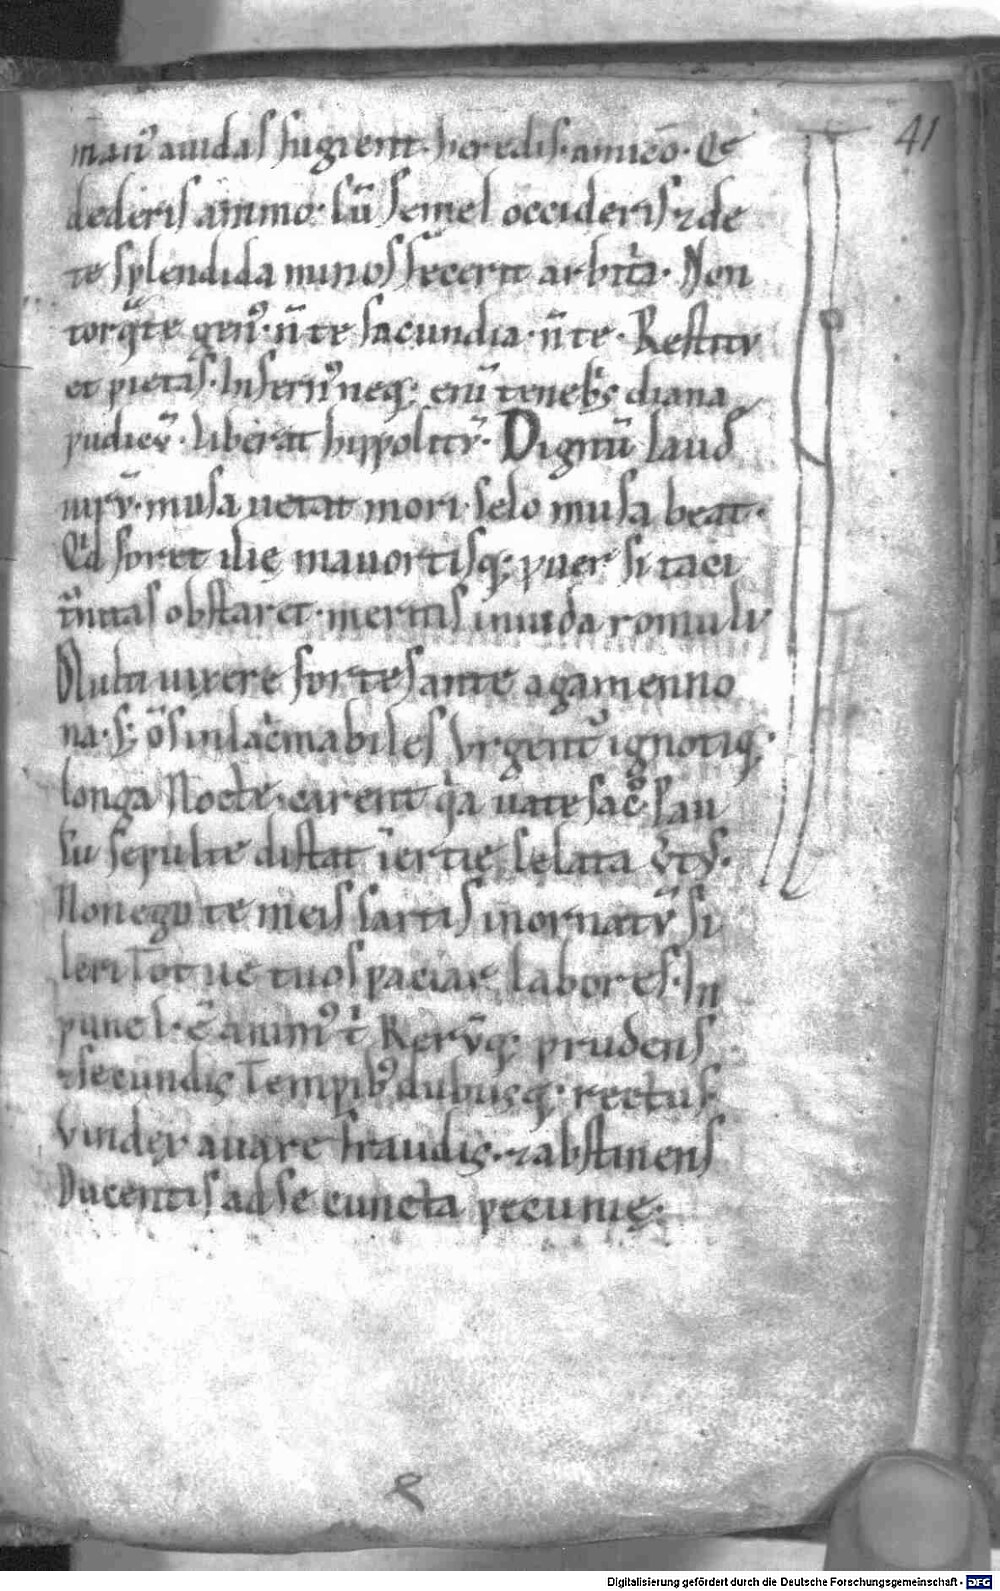 41
man᷒ auidas fugient. heredis. amico. Q̄
dederis animo. Cū semel occideris ⁊ de
te splendida minos fecerit arbitͥa. Non
torq̄te gen᷒. n̄ te facundia. n̄ te. Restituˀ
et pietas. Infernis neq; enī tenebͥs diana
pudicū. liberat hippolitū. Dignū laud̄
uirū. musa uetat mori. celo musa beat.
Qͥd foret ilię mauortisq; puer si taci
tͥnitas obstaret. meritis inuida romuli
Multi uixere fortes ante agamenno
na. s; ōs inlacͥmabiles Vrgent᷒ ignotiq;
longa Nocte. carent qͥa uate sacͦ. Pau
lu sepulte distat īertię Celata ūt᷒.
Non ego te meis cartis inornatū si
leri Tot ue tuos paciar labores. In
pune l. ē anim᷒ tͥ Rerūq; prudens
⁊ secundis Tempib᷒ dubiisq; rectus
Vindex auare fraudis. ⁊ abstinens
Ducentis ad se cuncta pecunię.
Digitalisierung gefördert durch die Deutsche Forschungsgemeinschaft - DFG